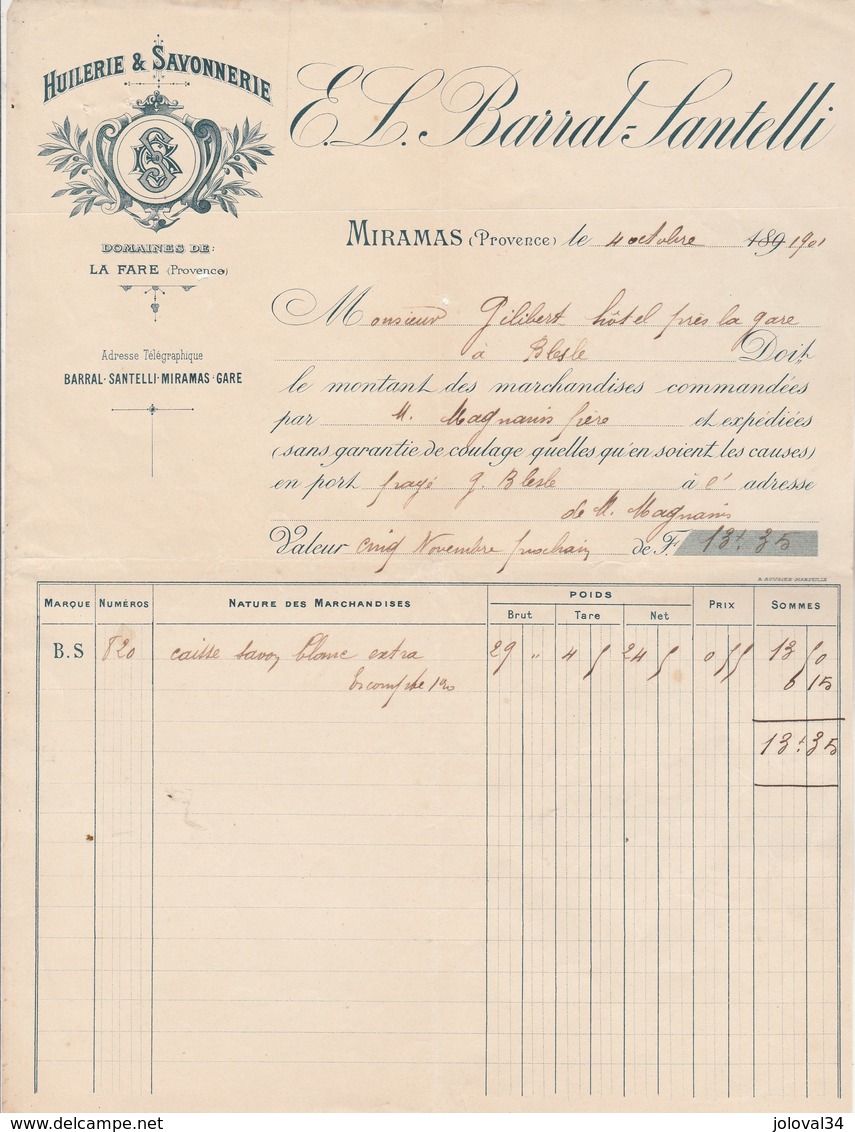 HUILERIE & SAVONNERIE
E. L. Barral-Santelli
DOMAINES DE:
LA FARE (Provence)
MIRAMAS (Provence) le 4 octobre 189 1901
Adresse Télégraphique
BARRAL-SANTELLI-MIRAMAS-GARE
Monsieur Gilibert hôtel près la gare
à Blesle Doit
le montant des marchandises commandées
par M. Magnanis frère et expédiées
(sans garantie de coulage quelles qu'en soient les causes)
en port payé g. Blesle à l' adresse
de M. Magnanis
Valeur cinq Novembre prochain de F. 13f.35
MARQUE NUMÉROS NATURE DES MARCHANDISES POIDS PRIX SOMMES
Brut Tare Net
B.S 820 caisse savon blanc extra 29 " 4 5 24 5 0 55 13 50
Escompte 1% 0 15
13f.35
delcampe.net
joloval34